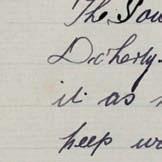 The Sou
Docherty
it as
keep wr